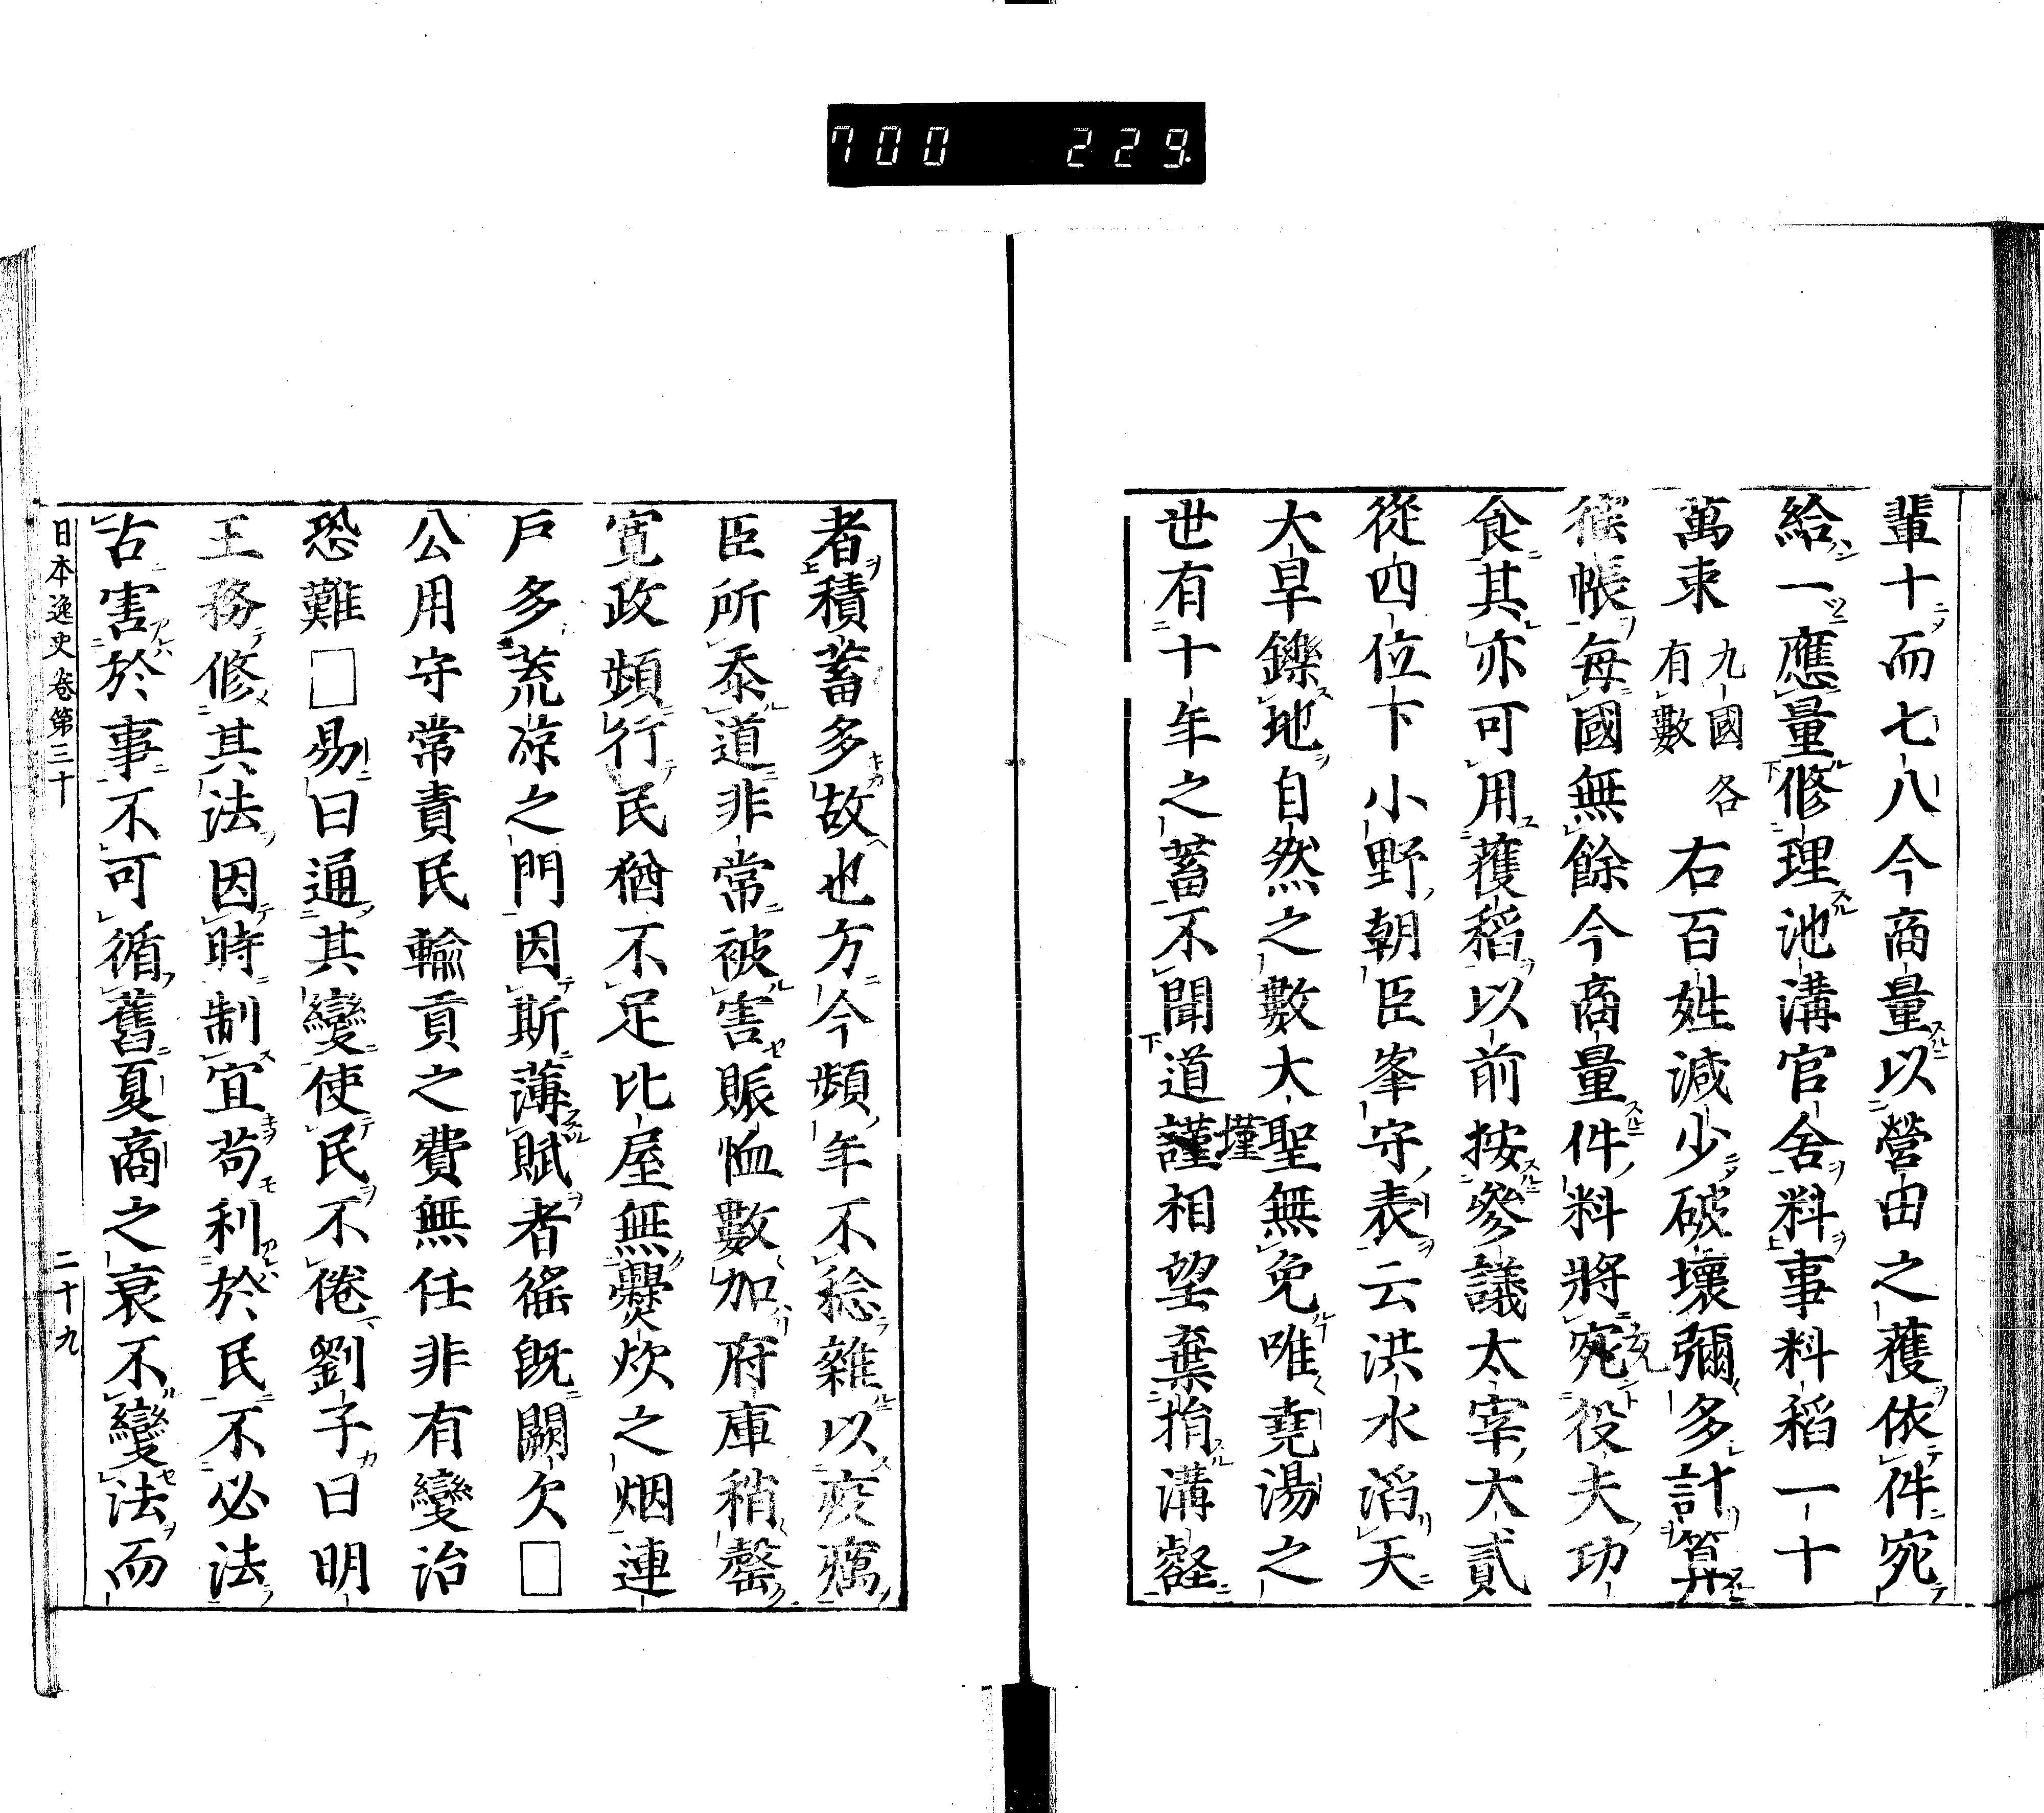 700 229
輩十而七八今商量以營田之穫依件宛
給一應量修理池溝官舍料事料稻一十
萬束 九國各有數 右百姓減少破壞彌多計算
徭帳每國無餘今商量件料將宛役夫功
食其亦可用穫稻以前按參議太宰大貳
從四位下小野朝臣峯守表云洪水滔天
大旱鑠地自然之數大聖無免唯堯湯之
世有十年之蓄不聞道謹相望棄捐溝壑
者積蓄多故也方今頻年不稔雜以疫癘
臣所忝道非常被害賑恤數加府庫稍罄
寬政頻行民猶不足比屋無爨炊之烟連
戶多荒凉之門因斯薄賦者徭既闕欠□
公用守常責民輸貢之費無任非有變治
恐難□易曰通其變使民不倦劉子曰明
王務修其法因時制宜苟利於民不必法
古害於事不可循舊夏商之衰不變法而
日本逸史卷第三十 二十九